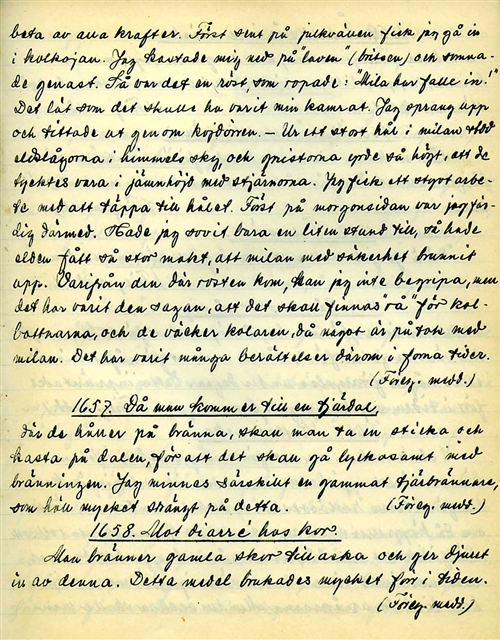 beta av alla krafter. Först sent på julkvällen fick jag gå in
i kolkojan. Jag kastade mig ned på "laven" (britsen) och somna-
de genast. Så var det en röst, som ropade: "Mila har falle in!"
Det lät som det skulle ha varit min kamrat. Jag sprang upp
och tittade ut genom kojdörren. – Ur ett stort hål i milan stod
eldslågorna i himmels sky, och gnistorna yrde så högt, att de
tycktes vara i jämnhöjd med stjärnorna. Jag fick ett styvt arbe-
te med att täppa till hålet. Först på morgonsidan var jag fär-
dig därmed. Hade jag sovit bara en liten stund till, så hade
elden fått så stor makt, att milan med säkerhet brunnit
upp. Varifrån den där rösten kom, kan jag inte begripa, men
det har varit den sagan, att det skall finnas "rå" för kol-
bottnarna, och de väcker kolaren, då något är på tok med
milan. Det har varit många berättelser därom i forna tider.
(Föreg. medd.)
1657. Då man kommer till en tjärdal,
där de håller på bränna, skall man ta en sticka och
kasta på dalen, för att det skall gå lyckosamt med
bränningen. Jag minnes särskilt en gammal tjärbrännare,
som höll mycket strängt på detta. (Föreg. medd.)
1658. Mot diarré hos kor.
Man bränner gamla skor till aska och ger djuret
in av denna. Detta medel brukades mycket förr i tiden.
(Föreg. medd.)